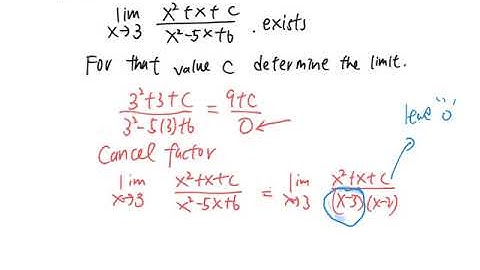 lim x→3 (x²+x+c)/(x²-5x+6) . exists
For that value C determine the limit.
(3²+3+c)/(3²-5(3)+6) = (9+c)/0
"0"
Cancel factor
lim x→3 (x²+x+c)/(x²-5x+6) = lim x→3 (x²+x+c)/((x-3)(x-2))